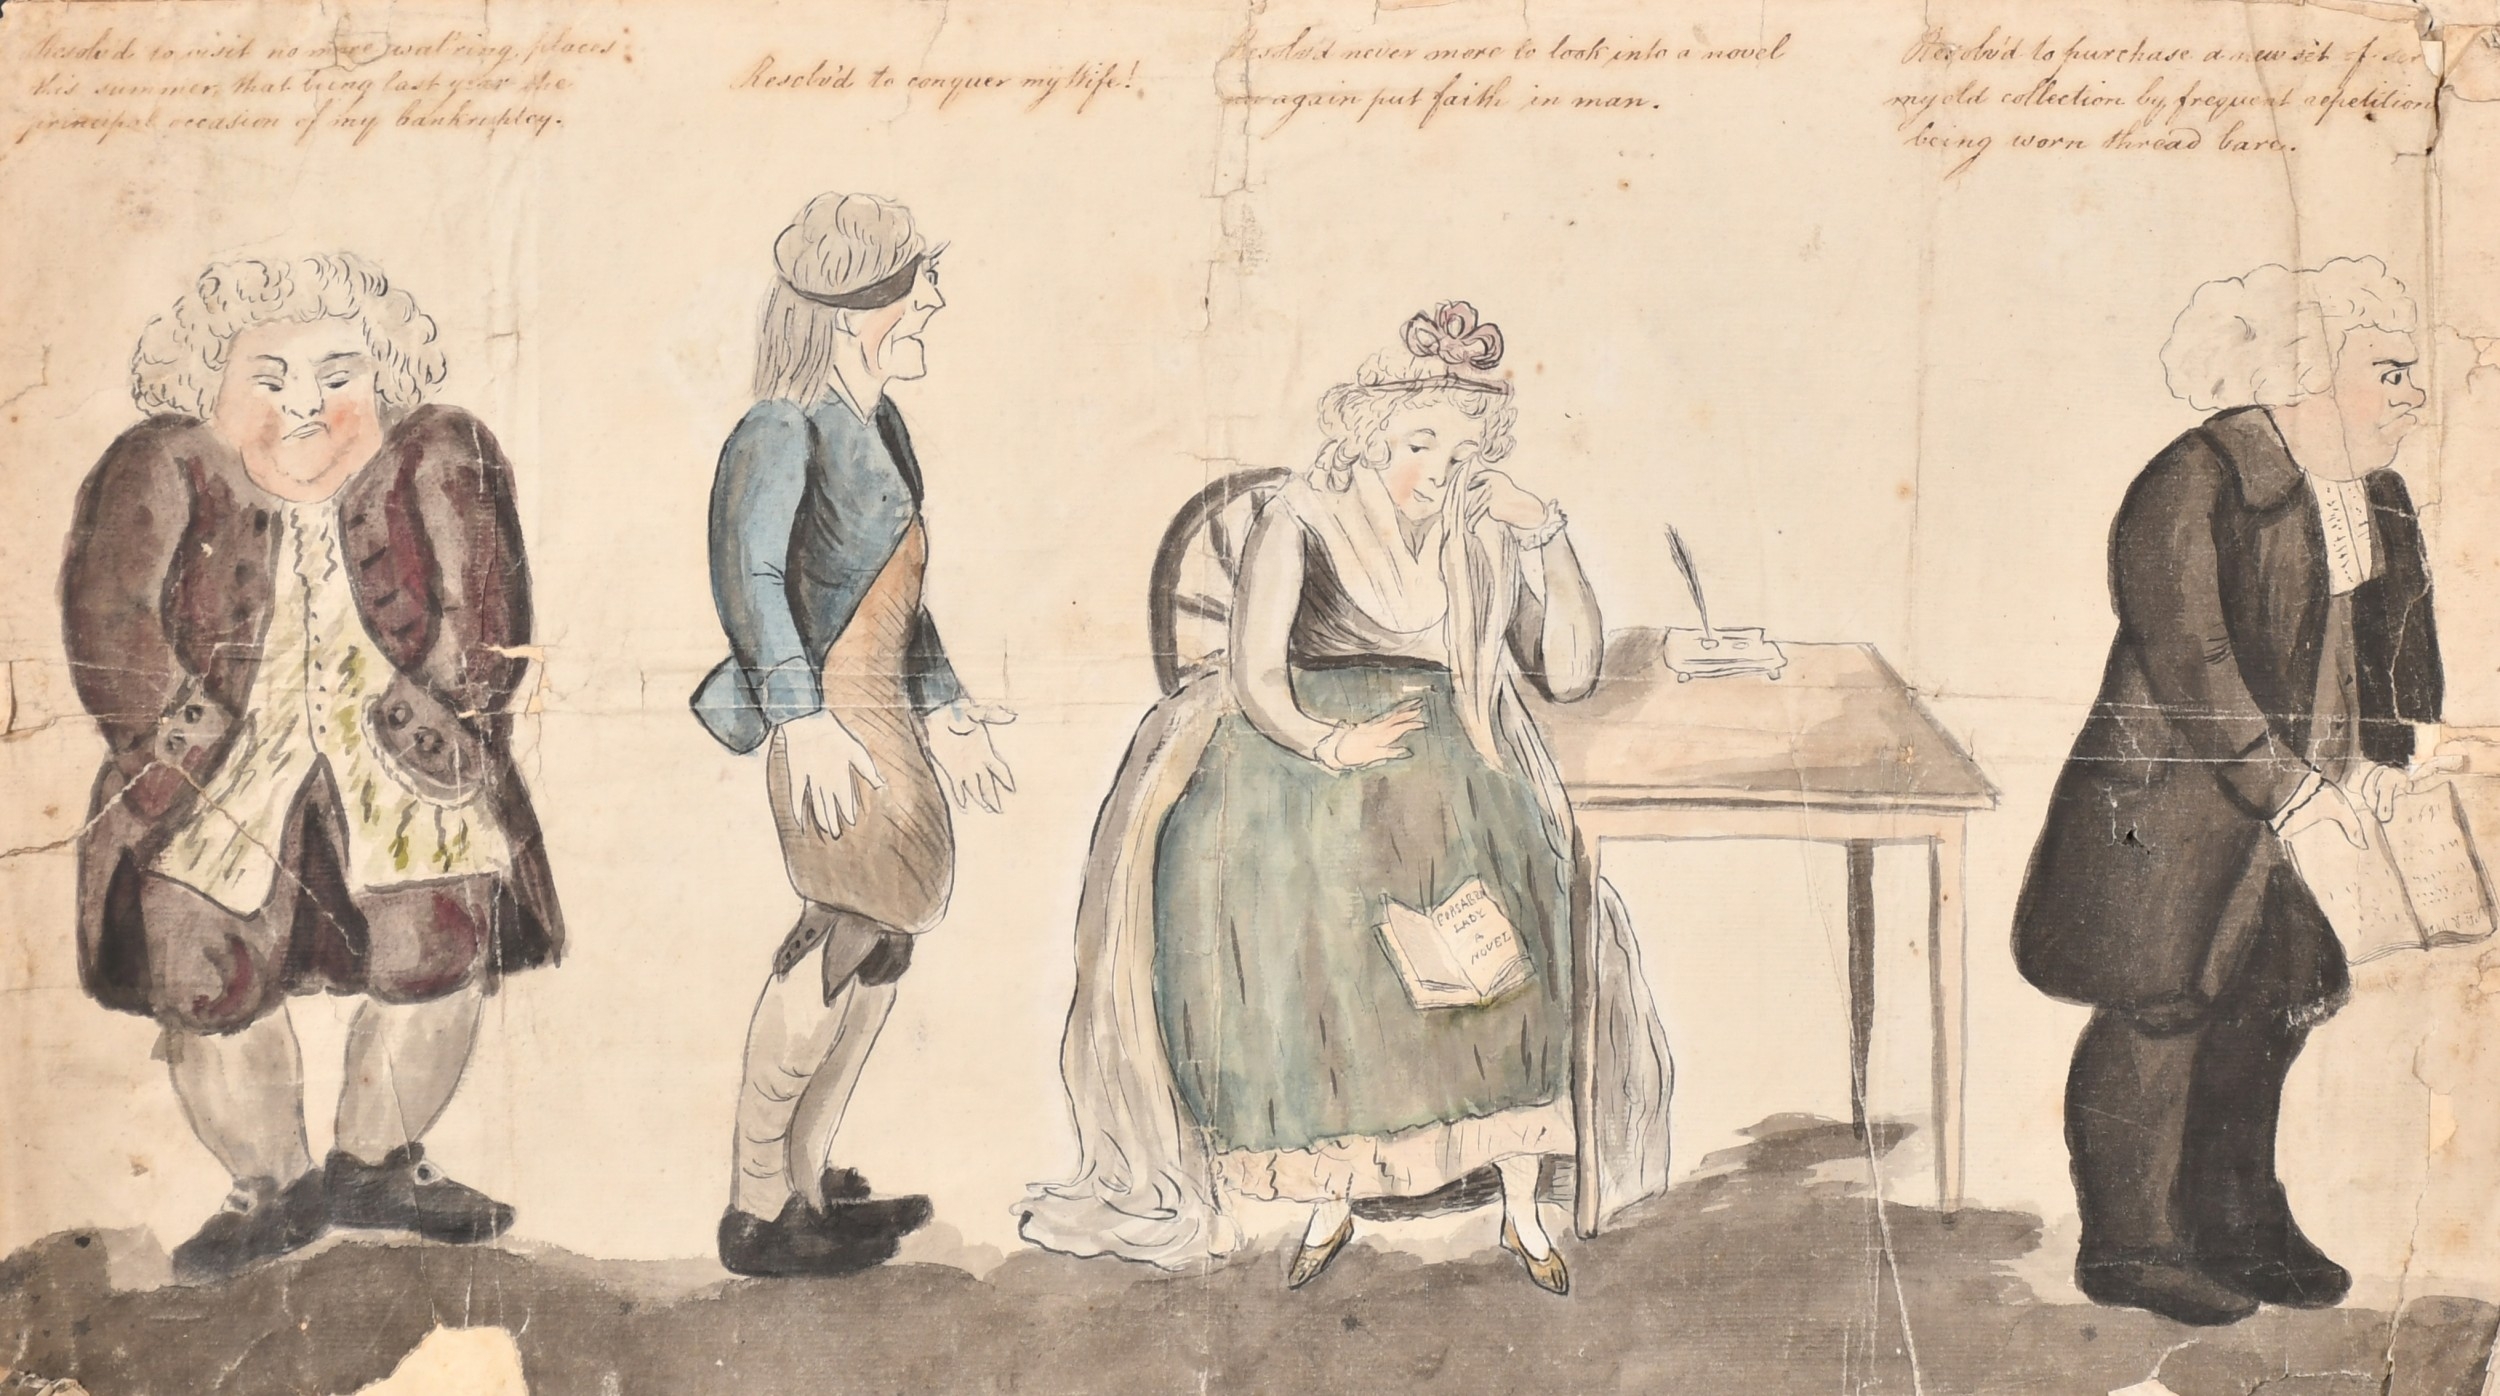 Resolv'd to visit no more wat'ring places
this summer, that being last year the
principal occasion of my bankruptcy.
Resolv'd to conquer my Wife!
Resolv'd never more to look into a novel
again put faith in man.
Resolv'd to purchase a new set of ser
my old collection by frequent repetition
being worn thread bare.
FORSAKEN
LADY
A
NOVEL